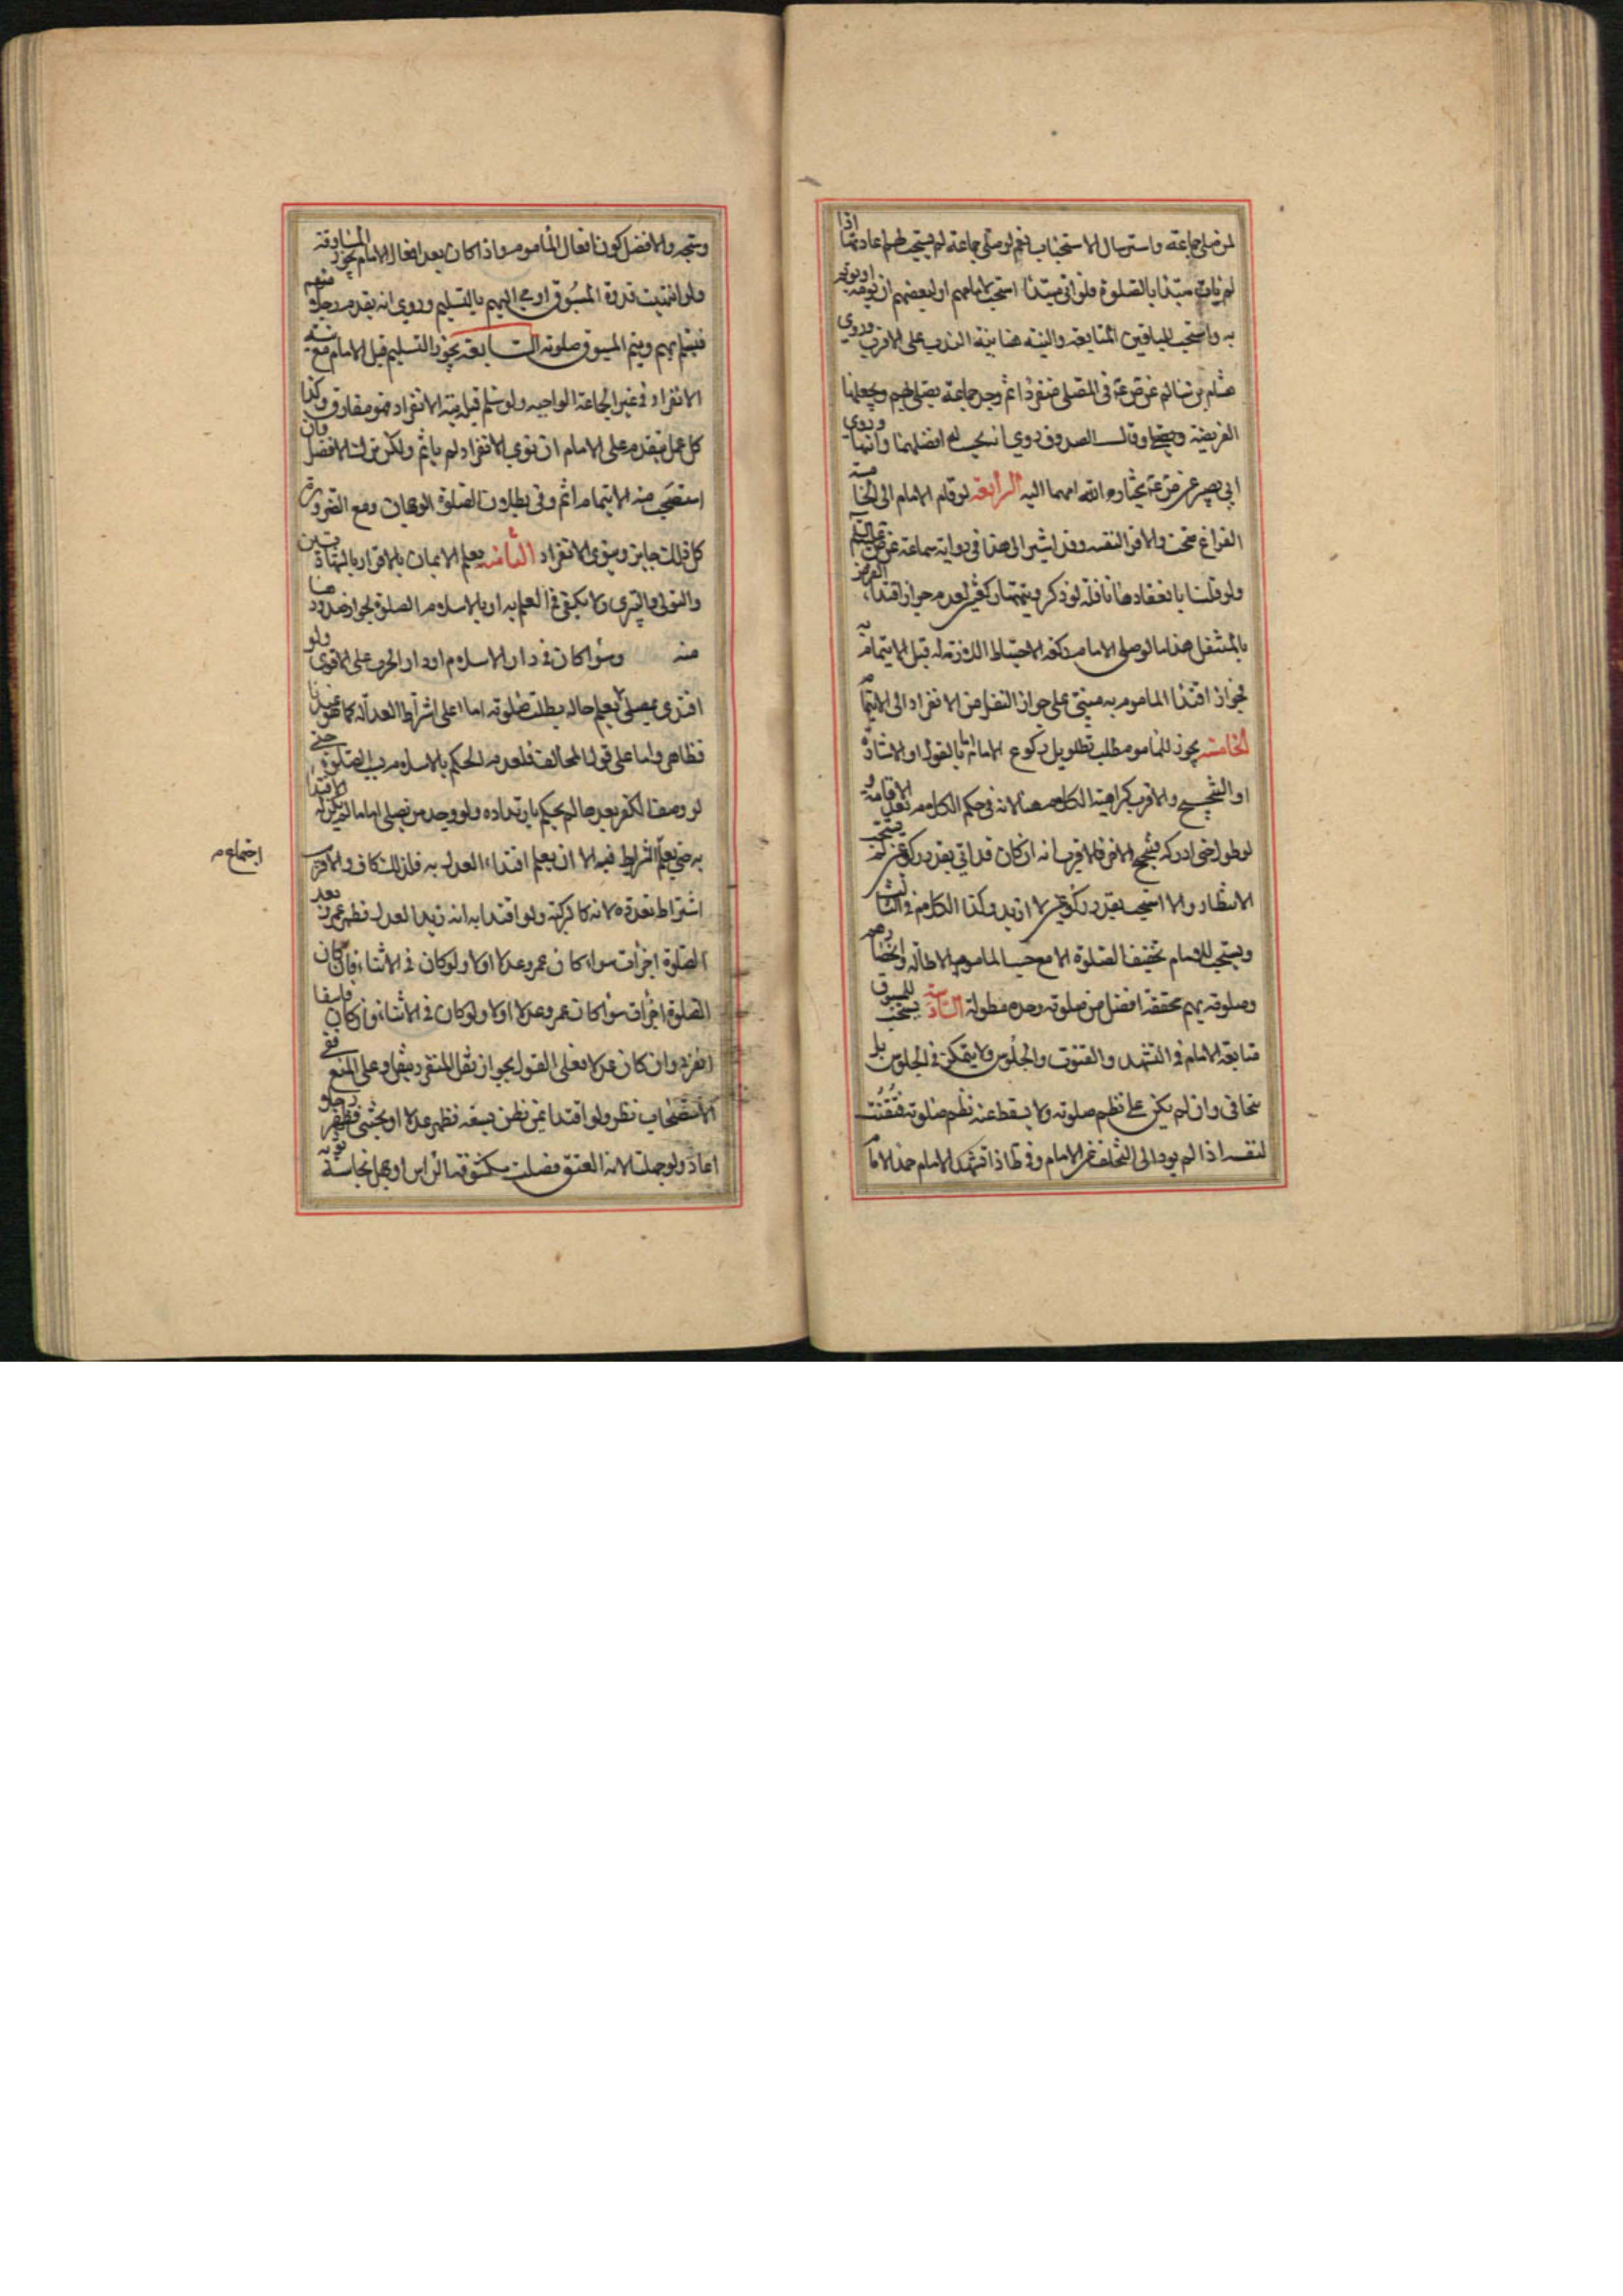 لمن صلى جماعة واسترسال الاستحباب نعم لو صلى جماعة لم يستحب لهم اعادتها اذا
لم يات مبتدا بالصلوة فلو اتى مبتدا استحب لامامهم او لبعضهم ان يؤمه او يؤتم
به واستحب للباقين المتابعة والنية هنا بنية الندب على الاقرب وروى
هشام بن سالم عن ص ع فى المصلى منفردا ثم وجد جماعة يصلى لهم ويجعلها
الفريضة وقال الصدوق روي انه يحسب له افضلهما واتمهما وروى
ابي بصير عن ص ع يختار الله احبهما اليه الرابعة لو قام الامام الى الخامسة
الفراغ صحت والاقرب وقد اشير الى هذا فى رواية سماعة عن ص عليه السلم
ولو قلنا بانعقادها نافلة لو ذكر ويتمها ركعتين لعدم جواز اقتداء المفترض
بالمتنفل هذا لو صلى الامام ركعة الاحتياط اللازمة له قبل الايتمام به
فجواز اقتدا الماموم به مبنى على جواز النقل من الانفراد الى الايتمام
الخامسة يجوز للماموم طلب تطويل ركوع الامام اما بالقول او الاشارة
او التنحنح والاقرب كراهية الكلام هنا لانه فى حكم الكلام بعد الاقامة و
لو طول حتى ادركه فتنحنح الاخر فالاقرب انه ان كان قد اتى بقدر ركوعين لم يستحب
الانتظار والا استحب بقدر ركوعين لا ازيد وكذا الكلام فى الثالث
ويستحب للامام تخفيف الصلوة الا مع حب المامومين الاطالة وانحصارهم
وصلوته بهم مخففة افضل من صلوته وحده مطولة السادسة يستحب للمسبوق
متابعة الامام فى التشهد والقنوت والجلوس ولا يتمكن فى الجلوس بل
يتجافى وان لم يكن على نظم صلوته ولا يسقط عنه نظم صلوته فيقنت
لنفسه اذا لم يود الى التخلف عن الامام وفى ط اذا تشهد الامام حمد الله
ويتجه والافضل كون افعال الماموم بعد افعال الامام المساوقة
ولو انتهت قدوة المسبوق اومى اليهم بالتسليم وروي انه يقدم رجلا منهم
فيسلم بهم ويتم المسبوق صلوته السابعة يجوز التسليم قبل الامام مع نية
الانفراد فى غير الجماعة الواجبة ولو سلم قبله بنية الانفراد فهو مفارق وكذا
كل عمل متقدم على الامام ان نوى الانفراد لم ياثم ولكن ترك الافضل وان
استصحب نية الايتمام اثم وفى بطلان الصلوة الوجهان ومع الضرورة
كل ذلك جايز وينوى الانفراد الثامنة يعلم الايمان بالاقرار بالشهادتين
والتولي والتبري ولا يكفى فى العلم به او بالاسلام الصلوة لجواز صدورها
منه وسوا كان فى دار الاسلام او دار الحرب على الاقوى ولو
اقتدى بمصلى لم يعلم حاله بطلت صلوته اما على اشتراط العدالة كما هو عندنا
فظاهر واما على قول المخالف فلعدم الحكم بالاسلام بالصلوة حتى
لو وصف الكفر بعدها لم يحكم بارتداده ولو وجد من يصلى اماما لم يكن له الاقتدا
به حتى يعلم الشرايط فيه الا ان يعلم اقتداء العدل به فذلك كاف والاقرب
اجتماع م
اشتراط تعدده لانه كالتزكية ولو اقتدا به انه زيد العدل فظهر عمرو بعد
الصلوة اجزات سواء كان عمرو عدلا اولا ولو كان فى الاثناء فان كان
الصلوة اجزات سوا كان عمرو عدلا اولا ولو كان فى الاثناء وان كان فاسقا
انفرد وان كان عدلا فعلى القول بجواز نقل المنفرد ينقل وعلى المنع ففى
الاستصحاب نظر ولو اقتدا بمن ظن فسقه فظهر عدلا او بخنثى فظهر رجلا
اعاد ولو جهلت الامة العتق فصلت مكشوفة الراس او جهل نجاسة ثوبه